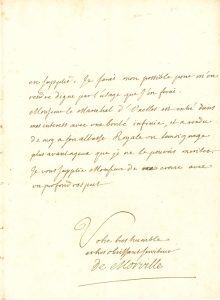 en supplie. Je ferai mon possible pour m'en
rendre digne par l'usage que j'en ferai.
Monsieur le Maréchal d'Uxelles est entré dans
mes interests avec une bonté infinie, et a rendu
de moy a son altesse Royale un temoignage
plus avantageux que je ne le pouvois meriter.
Je vous supplie Monsieur de me croire avec
un profond respect
Votre tres humble
et tres obeissant serviteur
de Morville